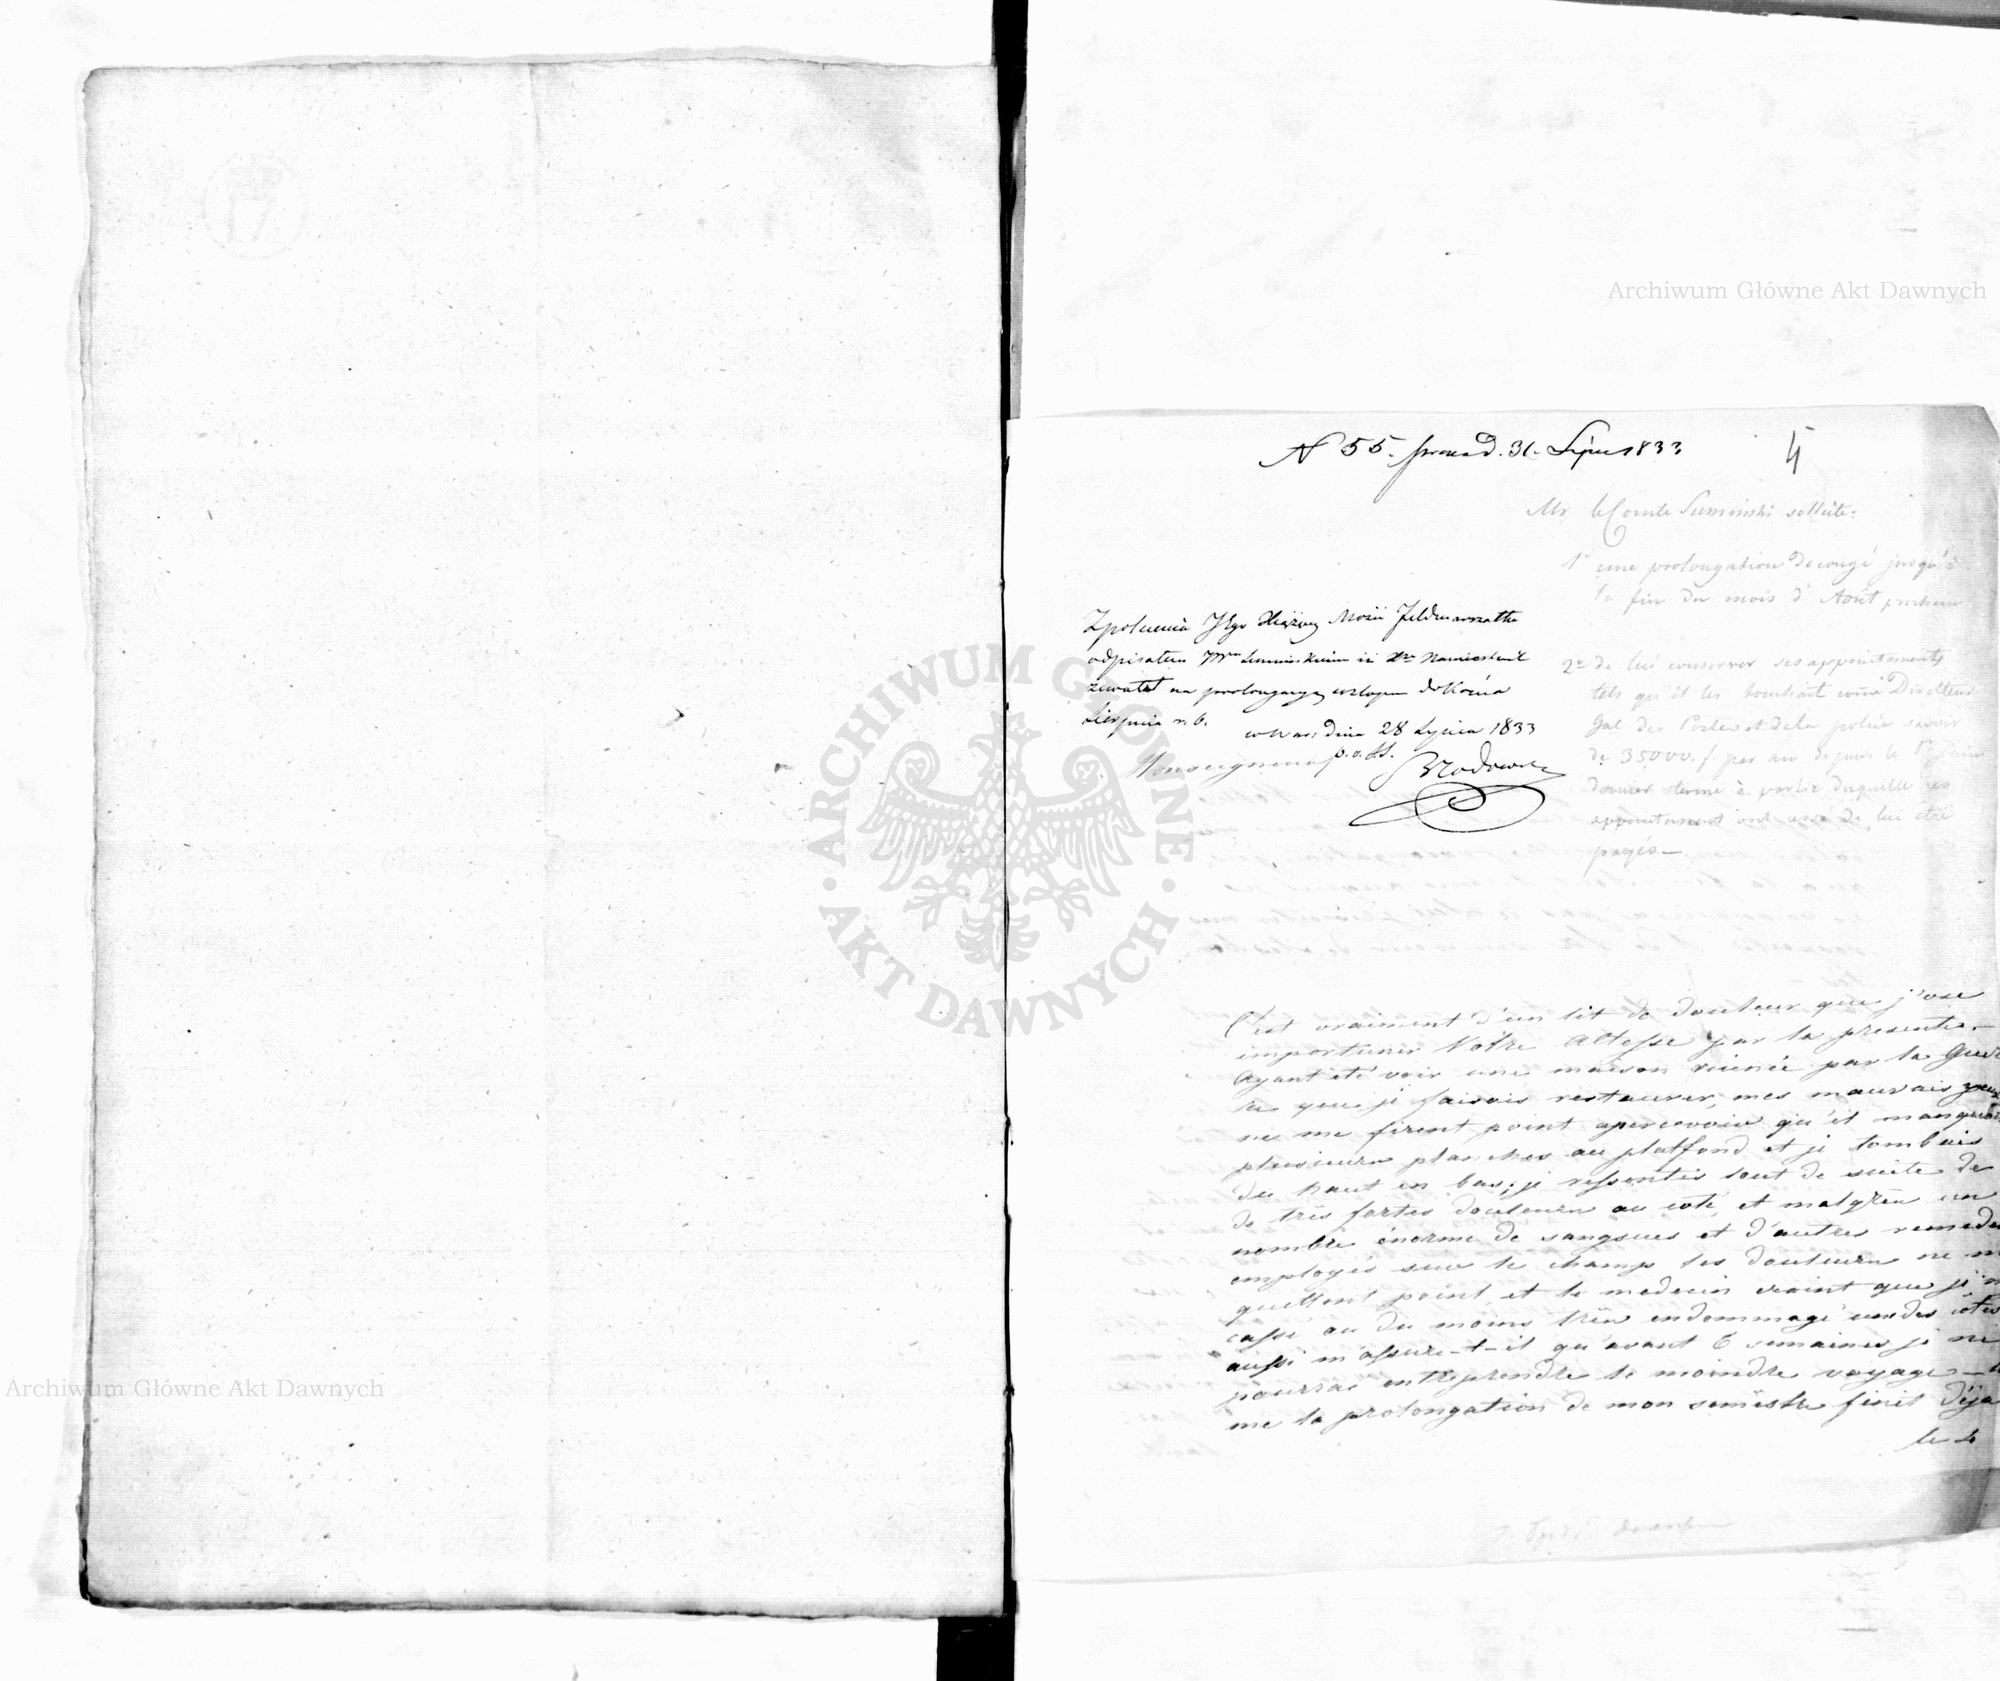 Archiwum Główne Akt Dawnych
N 55. d. 31. Lipca 1833
5
Mr le Comte Suminski sollicite:
1° une prolongation de congé jusqu'à
la fin du mois d'Août prochain
Z polecenia JOgo Xiążęcej Mości Feldmarszałka
odpisałem Suminskiemu iż Namiestnik
zezwolił na prolongacyą urlopu do końca
Sierpnia r. b.
w dnia 28 Lipca 1833
2° de lui conserver ses appointements
tels qu'il les touchait comme Directeur
Gal des Postes et de la police savoir
de 35000 f par an depuis le 1er
dernier terme à partir duquel ces
appointement ont cessé de lui être
payés —
Monseigneur
ARCHIWUM GŁÓWNE
AKT DAWNYCH
C'est vraiment d'un lit de douleur que j'ose
importuner Votre Altesse par la presente. —
Ayant été voir une maison ruinée par la guer
re que je faisais restaurer, mes mauvais yeux
ne me firent point apercevoir qu'il manquait
plusieurs planches au platfond et je tombais
du haut en bas; je ressentis tout de suite de
de très fortes douleurs au coté, et malgré un
nombre énorme de sangsues et d'autres remedes
employés sur le champ les douleurs ne m
quittent point, et le medecin craint que je n
cassé ou du moins très endommagé un des côtes
aussi m'assure-t-il qu'avant 6 semaines je ne
pourrai entreprendre le moindre voyage —
me la prolongation de mon semestre finit déja
le
Archiwum Główne Akt Dawnych